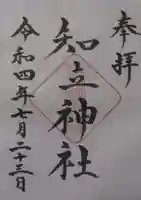 奉拝
知立神社
令和四年七月二十三日